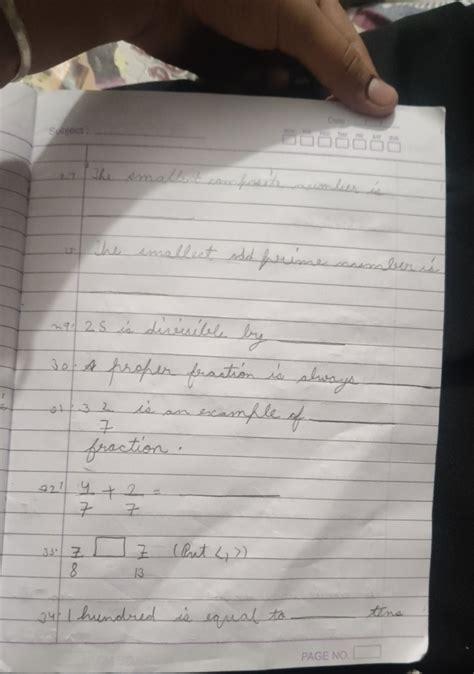 Date :
Subject :
MON TUE WED THU FRI SAT SUN
27. The smallest composite number is
28. The smallest odd prime number is
29. 25 is divisible by ______
30. A proper fraction is always ______
31. 3 2/7 is an example of ______
fraction.
32. 4/7 + 2/7 = ______
33. 7/8 □ 7/13 (Put <, >)
34. 1 hundred is equal to ______ tens
PAGE NO.